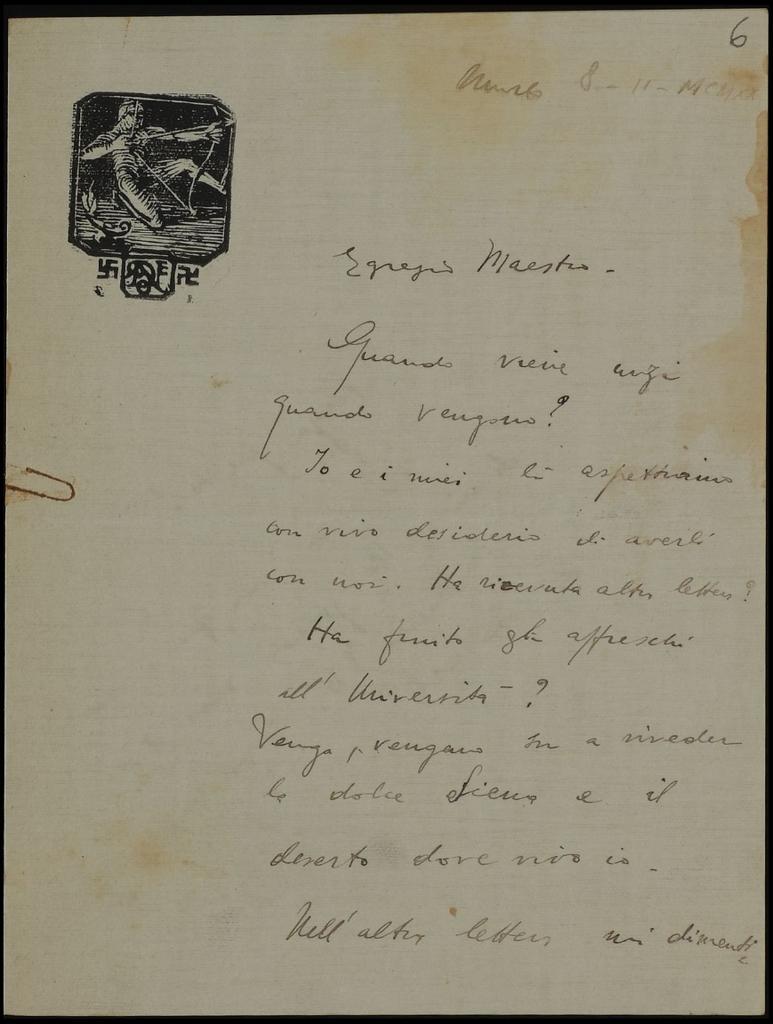 6
8 - 11 -
Egregio Maestro -
Quando viene anzi
quando vengono?
Io e i miei li aspettiamo
con vivo desiderio di averli
con noi. Ha ricevuta altra lettera?
Ha finito gli affreschi
all' Università - ?
Venga, vengano su a riveder
la dolce Siena e il
deserto dove vivo io -
Nell' altra lettera mi dimenti